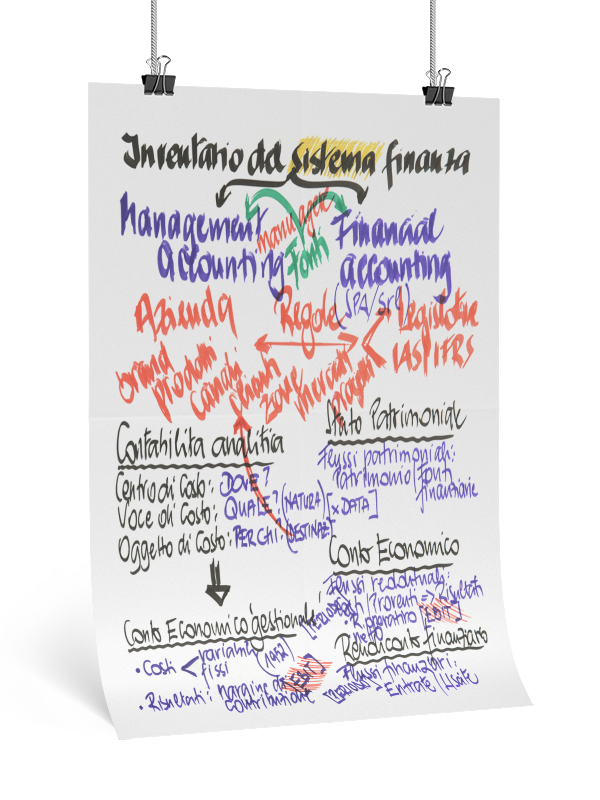 Inventario del sistema finanza
Management
Accounting
manager
Fonti
Financial
accounting
(SPA/Srl)
Azienda
Regole
Legislative
IAS/IFRS
brand
prodotti
Canali
clienti
zone
mercati
progetti
Contabilità analitica
Centro di Costo: DOVE?
Voce di Costo: QUALE? (NATURA) [x DATA]
Oggetto di Costo: PERCHI? (DESTINAZ
Stato Patrimoniale
Flussi patrimoniali:
Patrimonio/Fonti
finanziarie
Conto Economico
Flussi reddituali:
[PERIODO] Costi/Proventi => Risultati
• R. operativo [EBIT]
netto
Conto Economico "gestionale"
• Costi < variabili
fissi
(1952)
• Risultati: margine di
contribuzione
[EBIT]
Rendiconto finanziario
Flussi finanziari:
[PERIODO] Entrate/Uscite